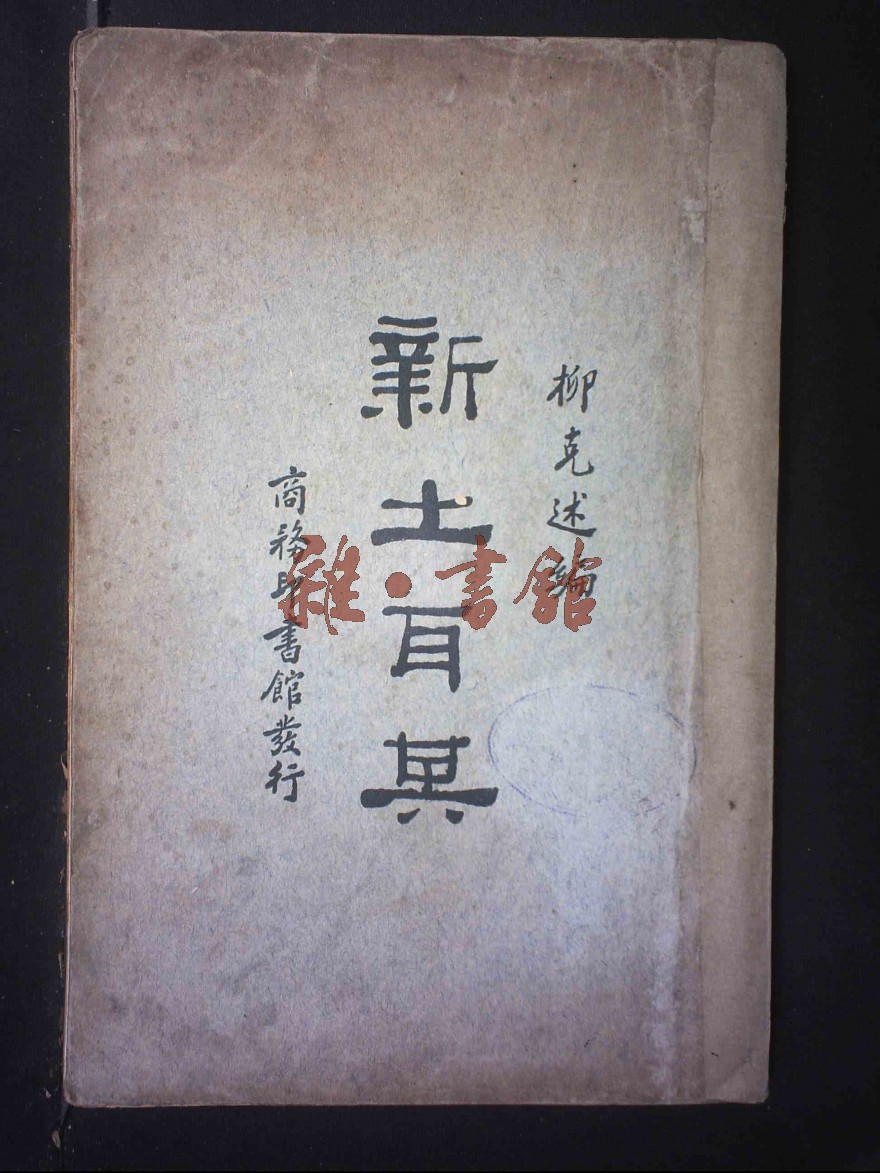 柳克述編
新土耳其
商務印書館發行
雜·書館